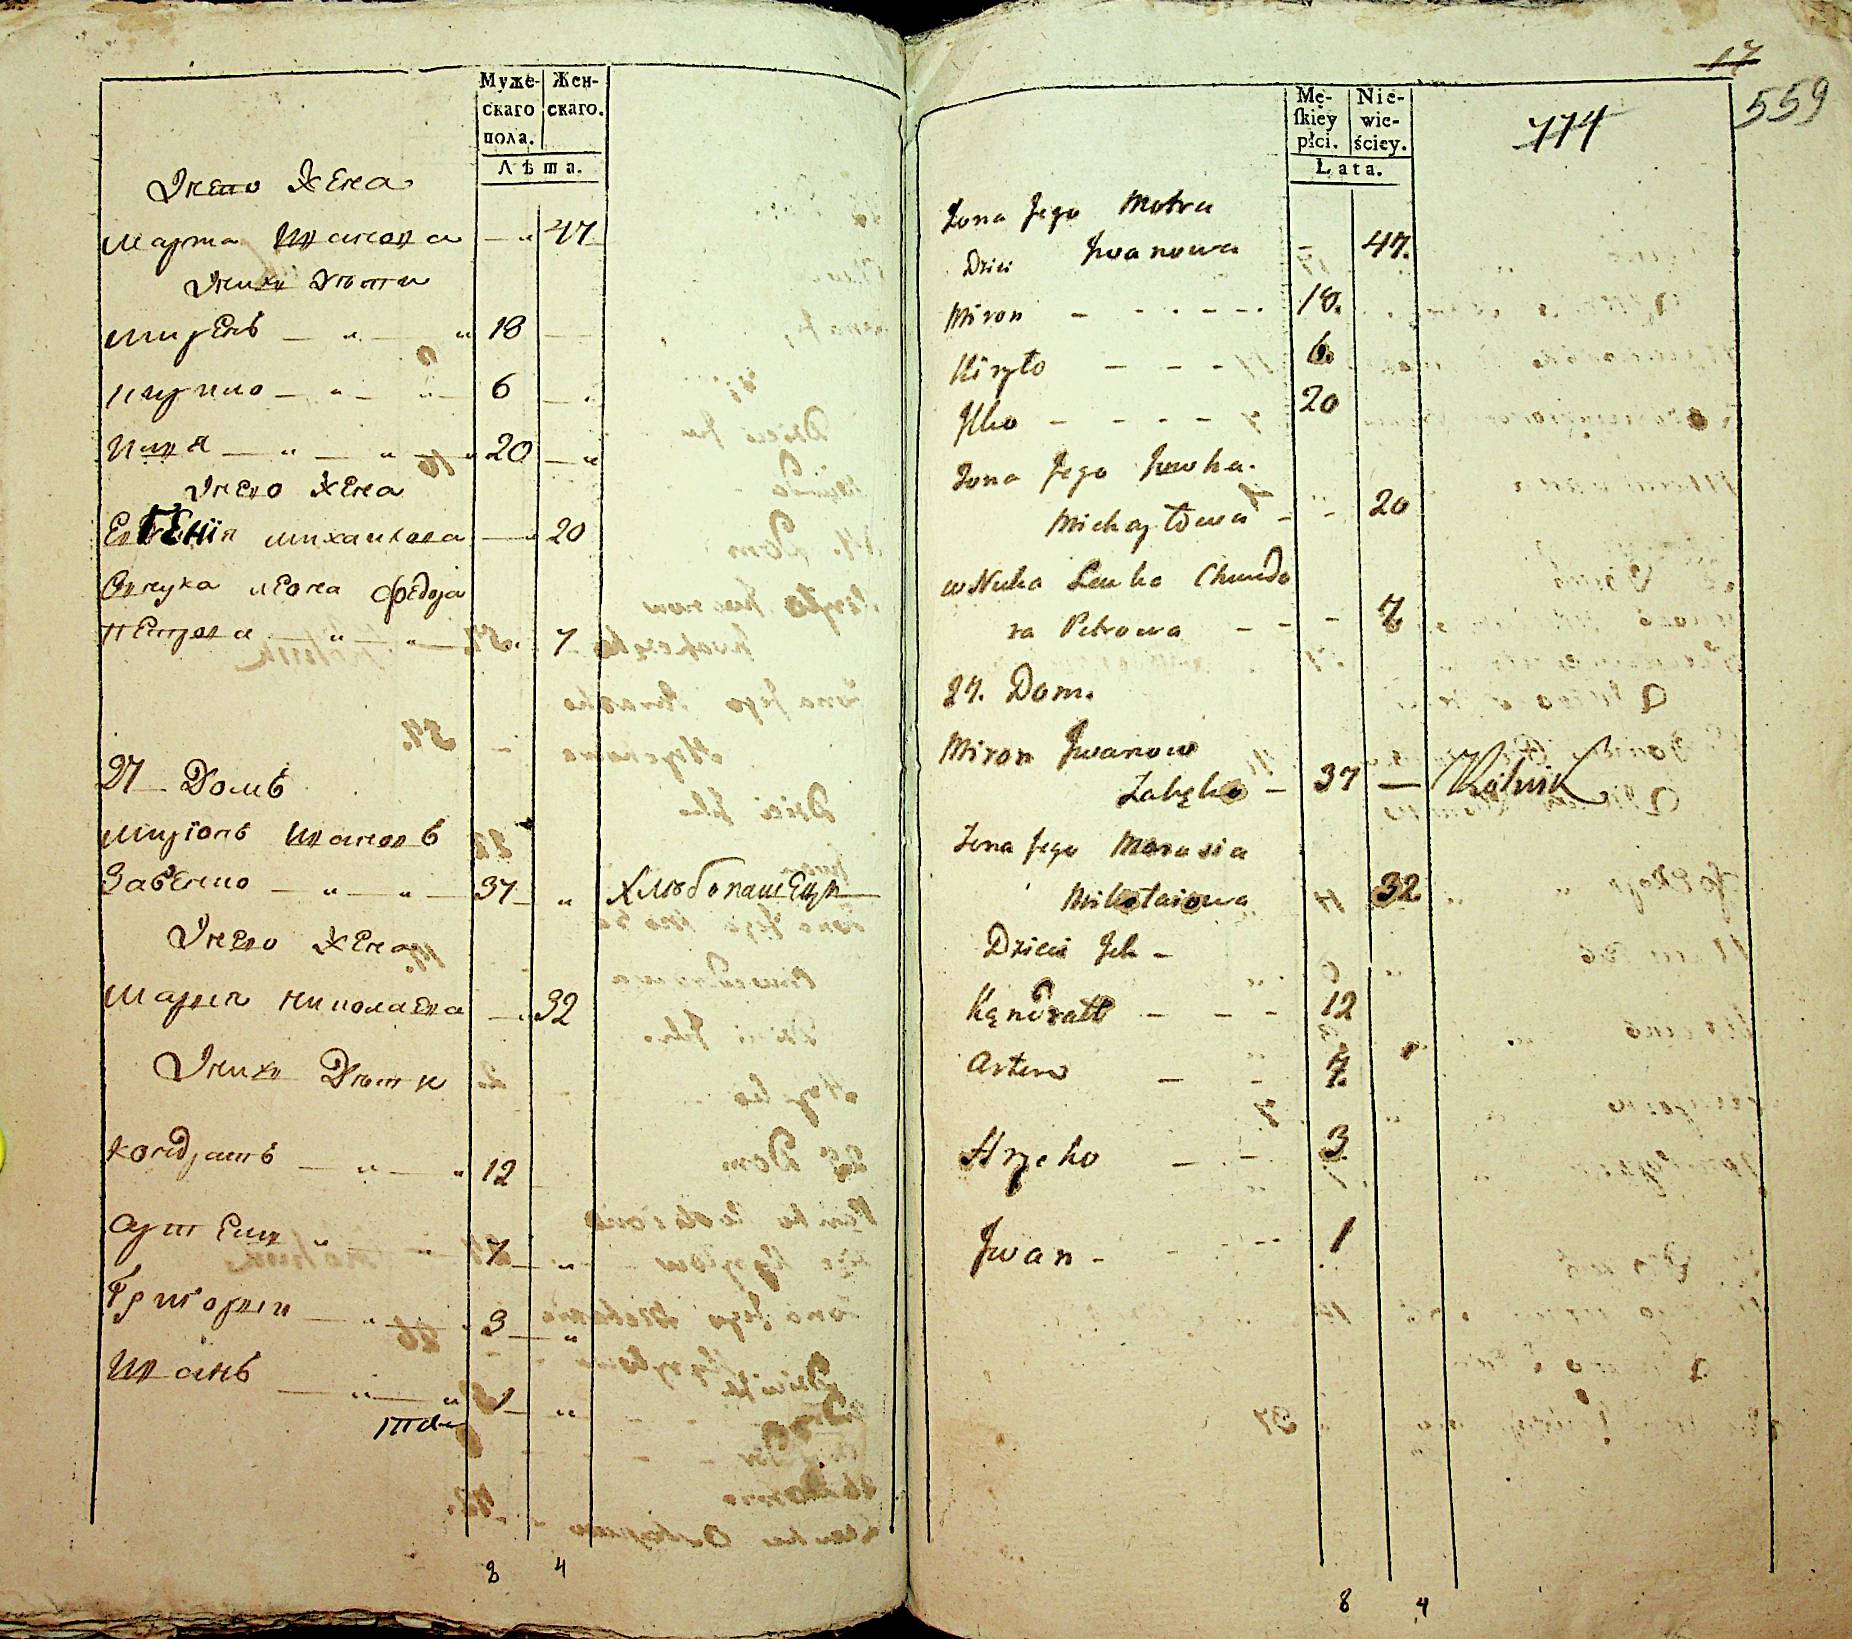 Муже-
скаго
пола.
Жен-
скаго.
Лѣта.
Жена
Марта Иванова — 47
Дѣти
Миронъ — 18
Кирило — 6
Илья — 20
Его Жена
Евгенія Михайлова — 20
Внука Федора
Петрова — 7
27 Домъ
Миронъ Ивановъ
Забенко — 37 „ Хлѣбопашецъ
Жена
Марія Николаева — 32
Ихъ Дѣти
Кондратъ — 12
Артемъ — 7 „
Григорій — 3 „
Иванъ — 1 „
8 4
17
559
774
Mę-
ſkiey
płci.
Nie-
wie-
ściey.
Lata.
Żona Jego Motra
Dzieci Jwanowa — 47.
Miron — 18.
Kiryło — 6.
Jlko — 20
Żona Jego Jewka.
Michayłowa — 20
wNuka Chwedo
ra Petrowa — 7
27. Dom.
Miron Jwanow
Zabęko — 37 — Rolnik
Żona Jego Marusia
Mikołaiowa 32
Dzieci Jch —
Kąndratt — 12
Artem — 7.
Hryćko — 3
Jwan — 1
8 4